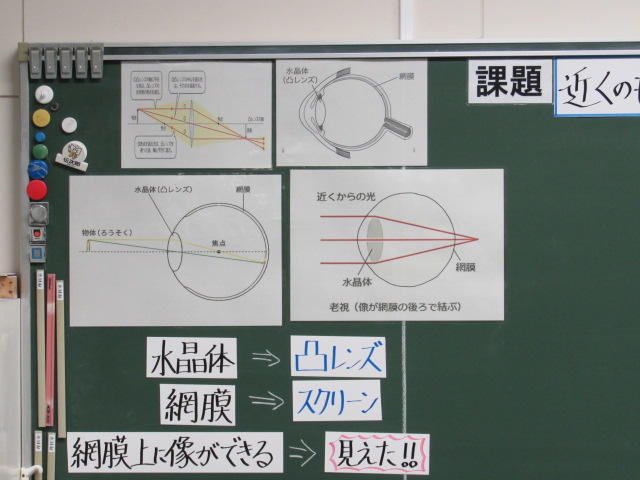 課題
近くのも
水晶体
(凸レンズ)
網膜
水晶体(凸レンズ)
網膜
物体(ろうそく)
焦点
近くからの光
水晶体
網膜
老視(像が網膜の後ろで結ぶ)
水晶体 ⇒ 凸レンズ
網膜 ⇒ スクリーン
網膜上に像ができる ⇒ 見えた!!